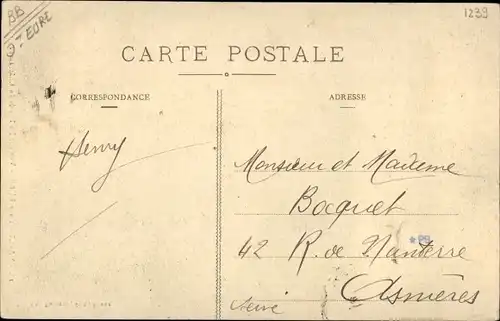 BB
27 EURE
1239
CARTE POSTALE
CORRESPONDANCE
ADRESSE
Henry
Monsieur et Madame
Bocquet
42 R. de Nanterre
Asnières
Seine